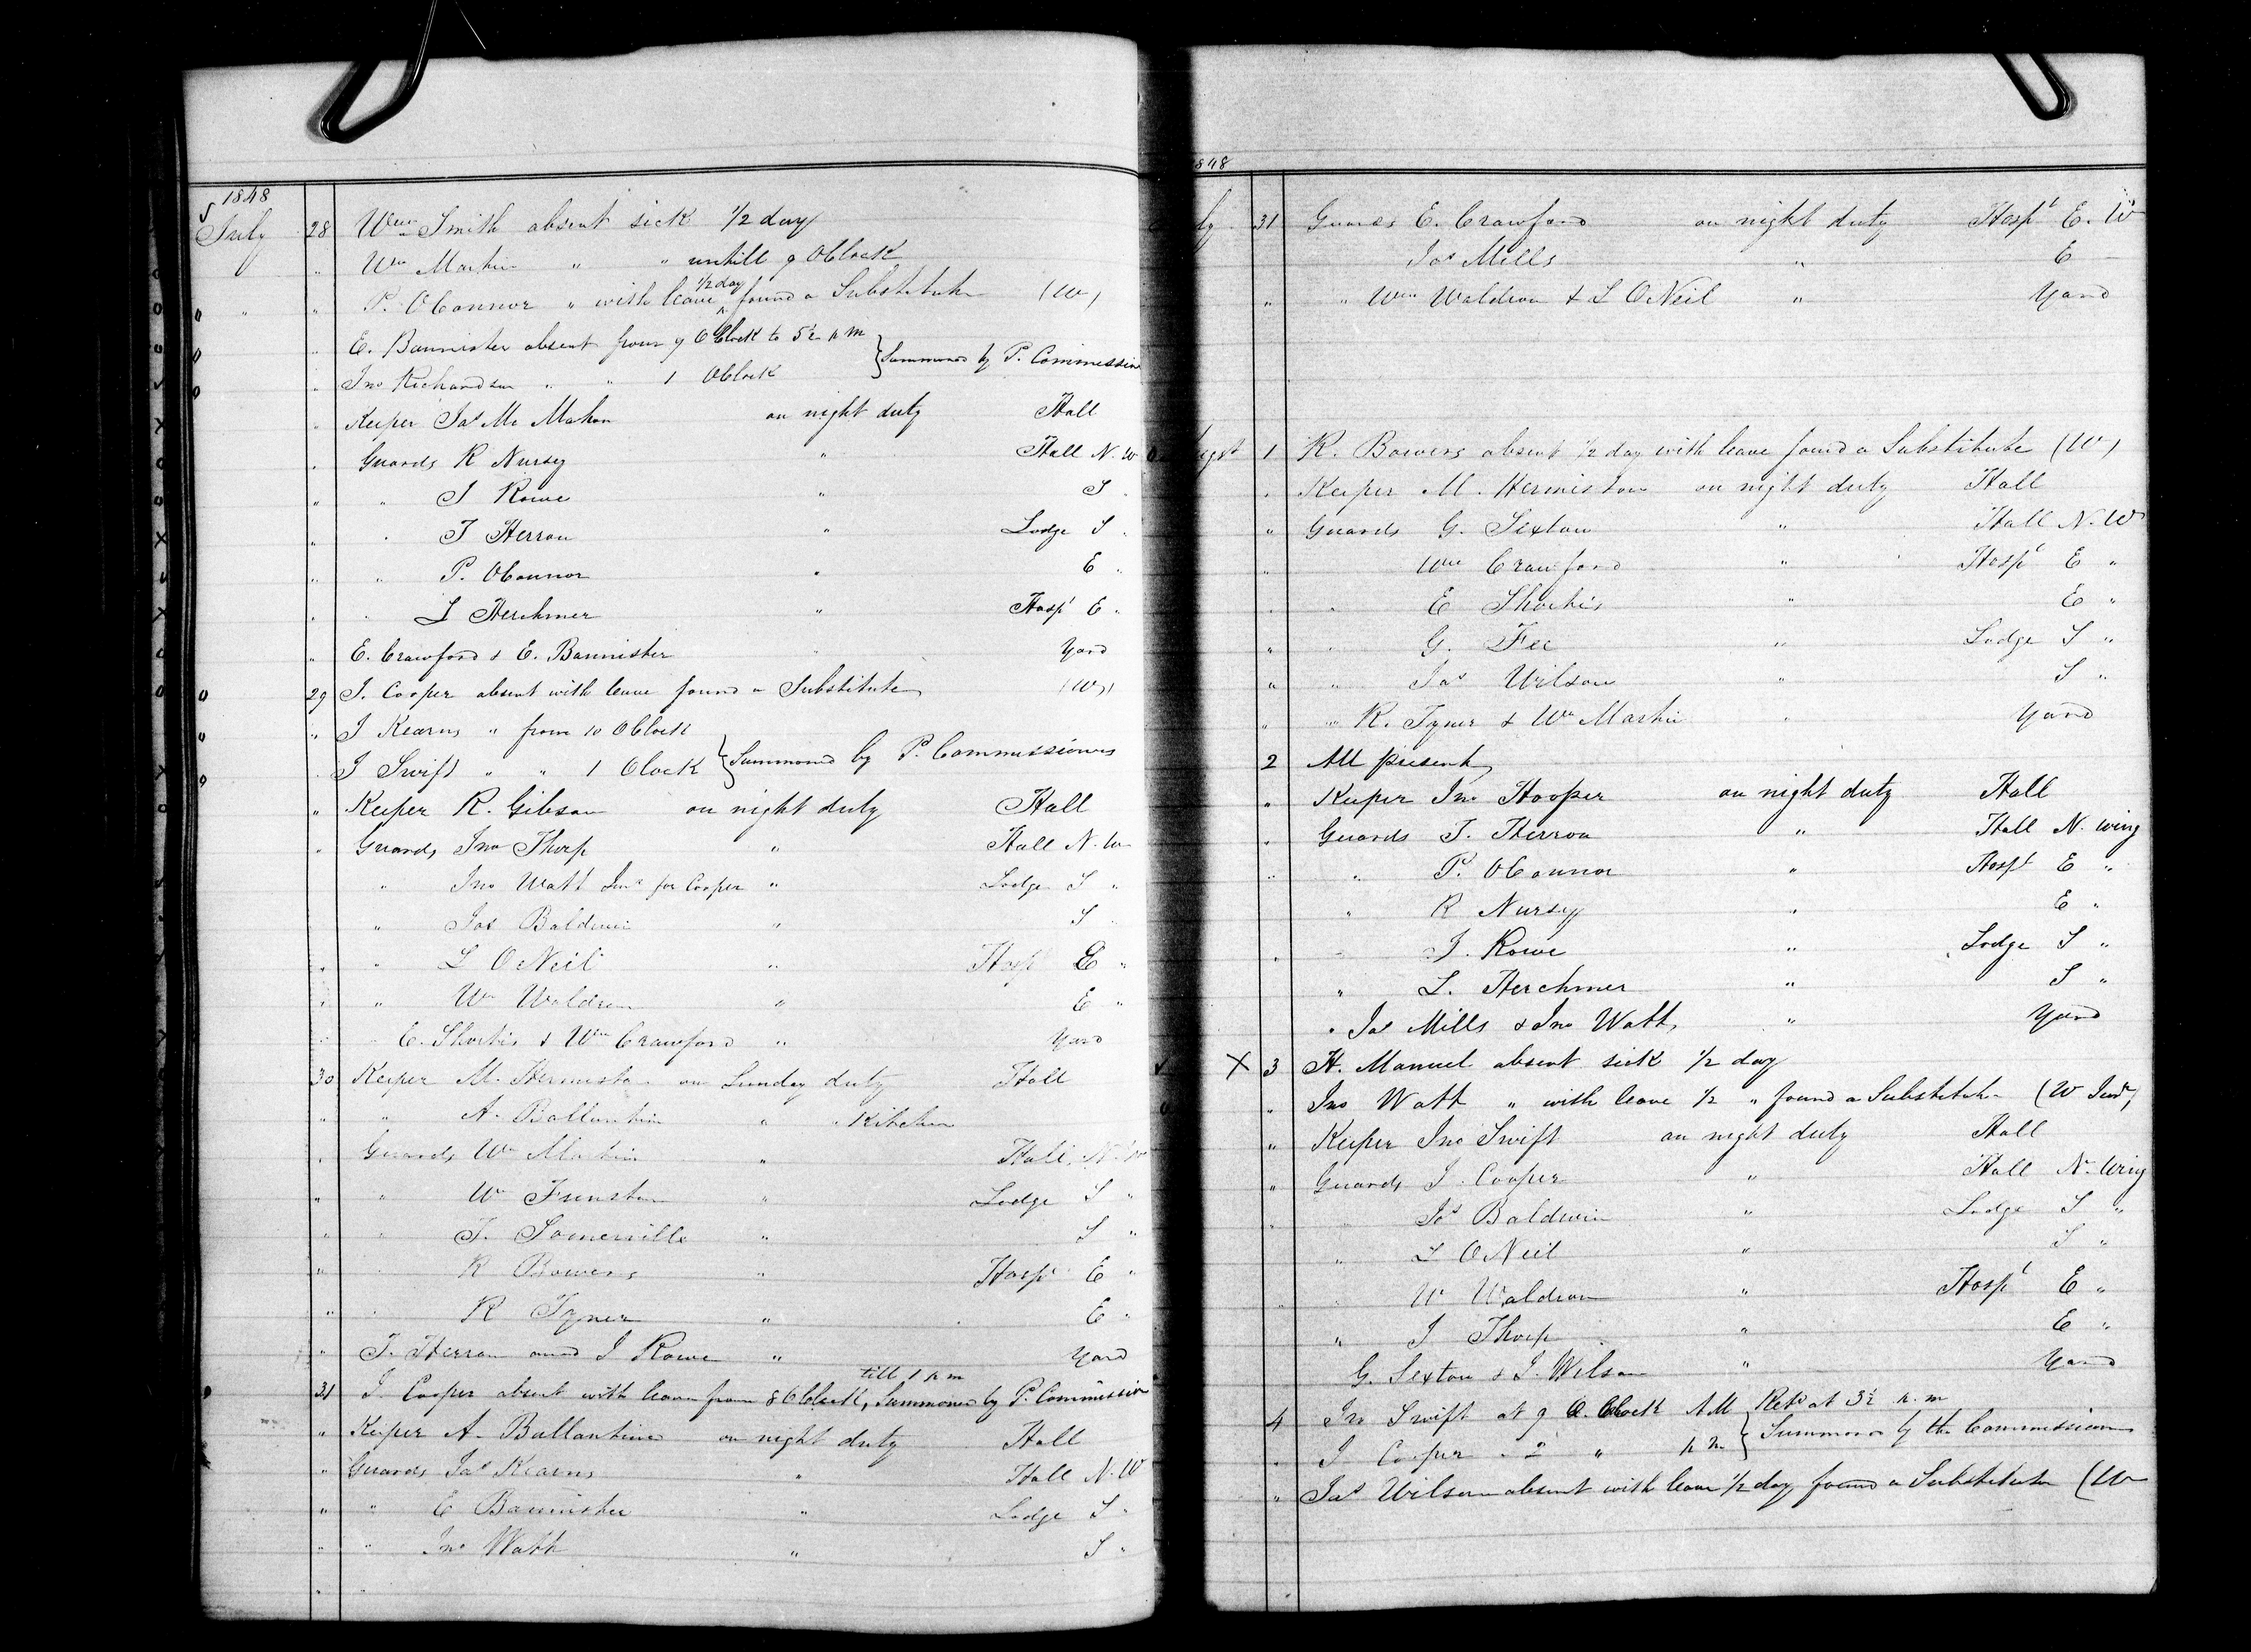 1848
July 28 Wm Smith absent sick 1/2 day
" Wm Martin " " untill 9 OClock
" " " P. OConnor " with leave 1/2 day found a Substitute (W)
" E. Bannister absent from 9 OClock to 5½ p m
" Jno Richardson " " 1 OClock } Summoned by P. Commission
" Keeper Jas Mc Mahon on night duty Hall
" Guards R Nursey " Hall N. W
" " J Rowe " S "
" " T Herron " Lodge S "
" " P. OConnor " E "
" " L Herchmer " Hospl E "
" E. Crawford & E. Bannister " Yard
29 J. Cooper absent with leave found a Substitute (W)
" J Kearns " from 10 OClock
" J Swift " " 1 Olock } Summoned by P. Commissioners
" Keeper R. Gibson on night duty Hall
" Guards Jno Thorp " Hall N. W
" Jno Watt Senr for Cooper " Lodge S "
" Jas Baldwin " S "
" " L ONeil " Hospl E "
" " Wm Waldron " E "
" " E. Shorter & Wm Crawford " Yard
30 Keeper M. Hermiston on Sunday duty Hall
" " A. Ballantine " " Kitchen
" Guards Wm Martin " Hall N. W
" " W Funston " Lodge S "
" " T. Somerville " S "
" " R Bowers " Hospl E "
" " R Tyner " E "
" T. Herron and J Rowe " Yard
31 J. Cooper absent with leave from 8 OClock till 1 p m, Summoned by P. Commission
" Keeper A. Ballantine on night duty Hall
" Guards Jas Kearns " Hall N. W
" " E Bannister " Lodge S "
" " Jno Watt " S "
848
ly 31 Guards E. Crawford on night duty Hospl E. W
Jas Mills " E
" " Wm Waldron & L ONeil " Yard
ugst 1 R. Bowers absent 1/2 day with leave found a Substitute (W)
" Keeper M. Hermiston on night duty Hall
" Guards G. Sexton " Hall N. W
" Wm Crawford " Hospl E "
" " E Shorter " E "
" " G. Fee " Lodge S "
" " Jas Wilson " S "
" " R. Tyner & Wm Martin " Yard
2 All present
" Keeper Jno Hooper on night duty Hall
" Guards T. Herron " Hall N. Wing
" " P. OConnor " Hospl E "
" R Nursey " E "
" " J. Rowe " Lodge S "
" L. Herchmer " S "
" Jas Mills & Jno Watt " Yard
X 3 H. Manuel absent sick 1/2 day
" Jno Watt " with leave 1/2 " found a Substitute (W Senr)
" Keeper Jno Swift on night duty Hall
" Guards J. Cooper " Hall N. Wing
" Jas Baldwin " Lodge S "
" L ONeil " S "
" W Waldron " Hospl E "
" J Thorp " E "
G. Sexton & J. Wilson " Yard
4 Jno Swift at 9 O. Clock AM } Retd at 3½ p. m
" J Cooper " 2 " p m } Summoned by the Commissioners
" Jas Wilson absent with leave 1/2 day found a Substitute (W